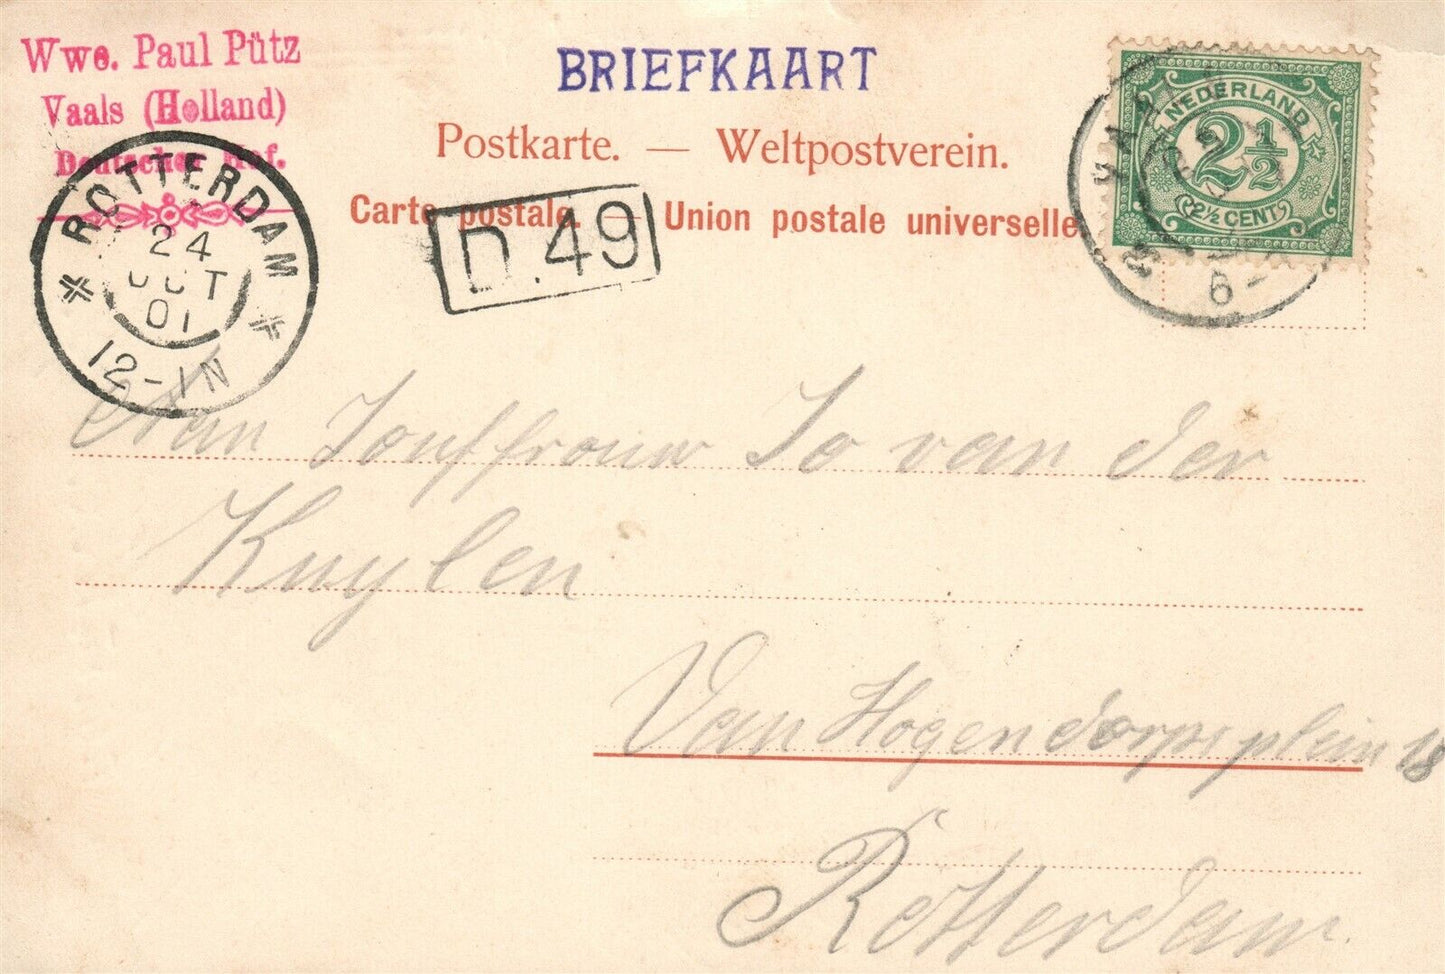 Wwe. Paul Pütz
Vaals (Holland)
Deutscher Hof.
BRIEFKAART
Postkarte. — Weltpostverein.
Carte postale. — Union postale universelle
D.49
ROTTERDAM
24
OCT
01
12-1N
NEDERLAND
2½
2½ CENT
VAALS
6-
Jouffrouw Jo van der
Kuylen
Van Hogendorpsplein 18
Rotterdam.